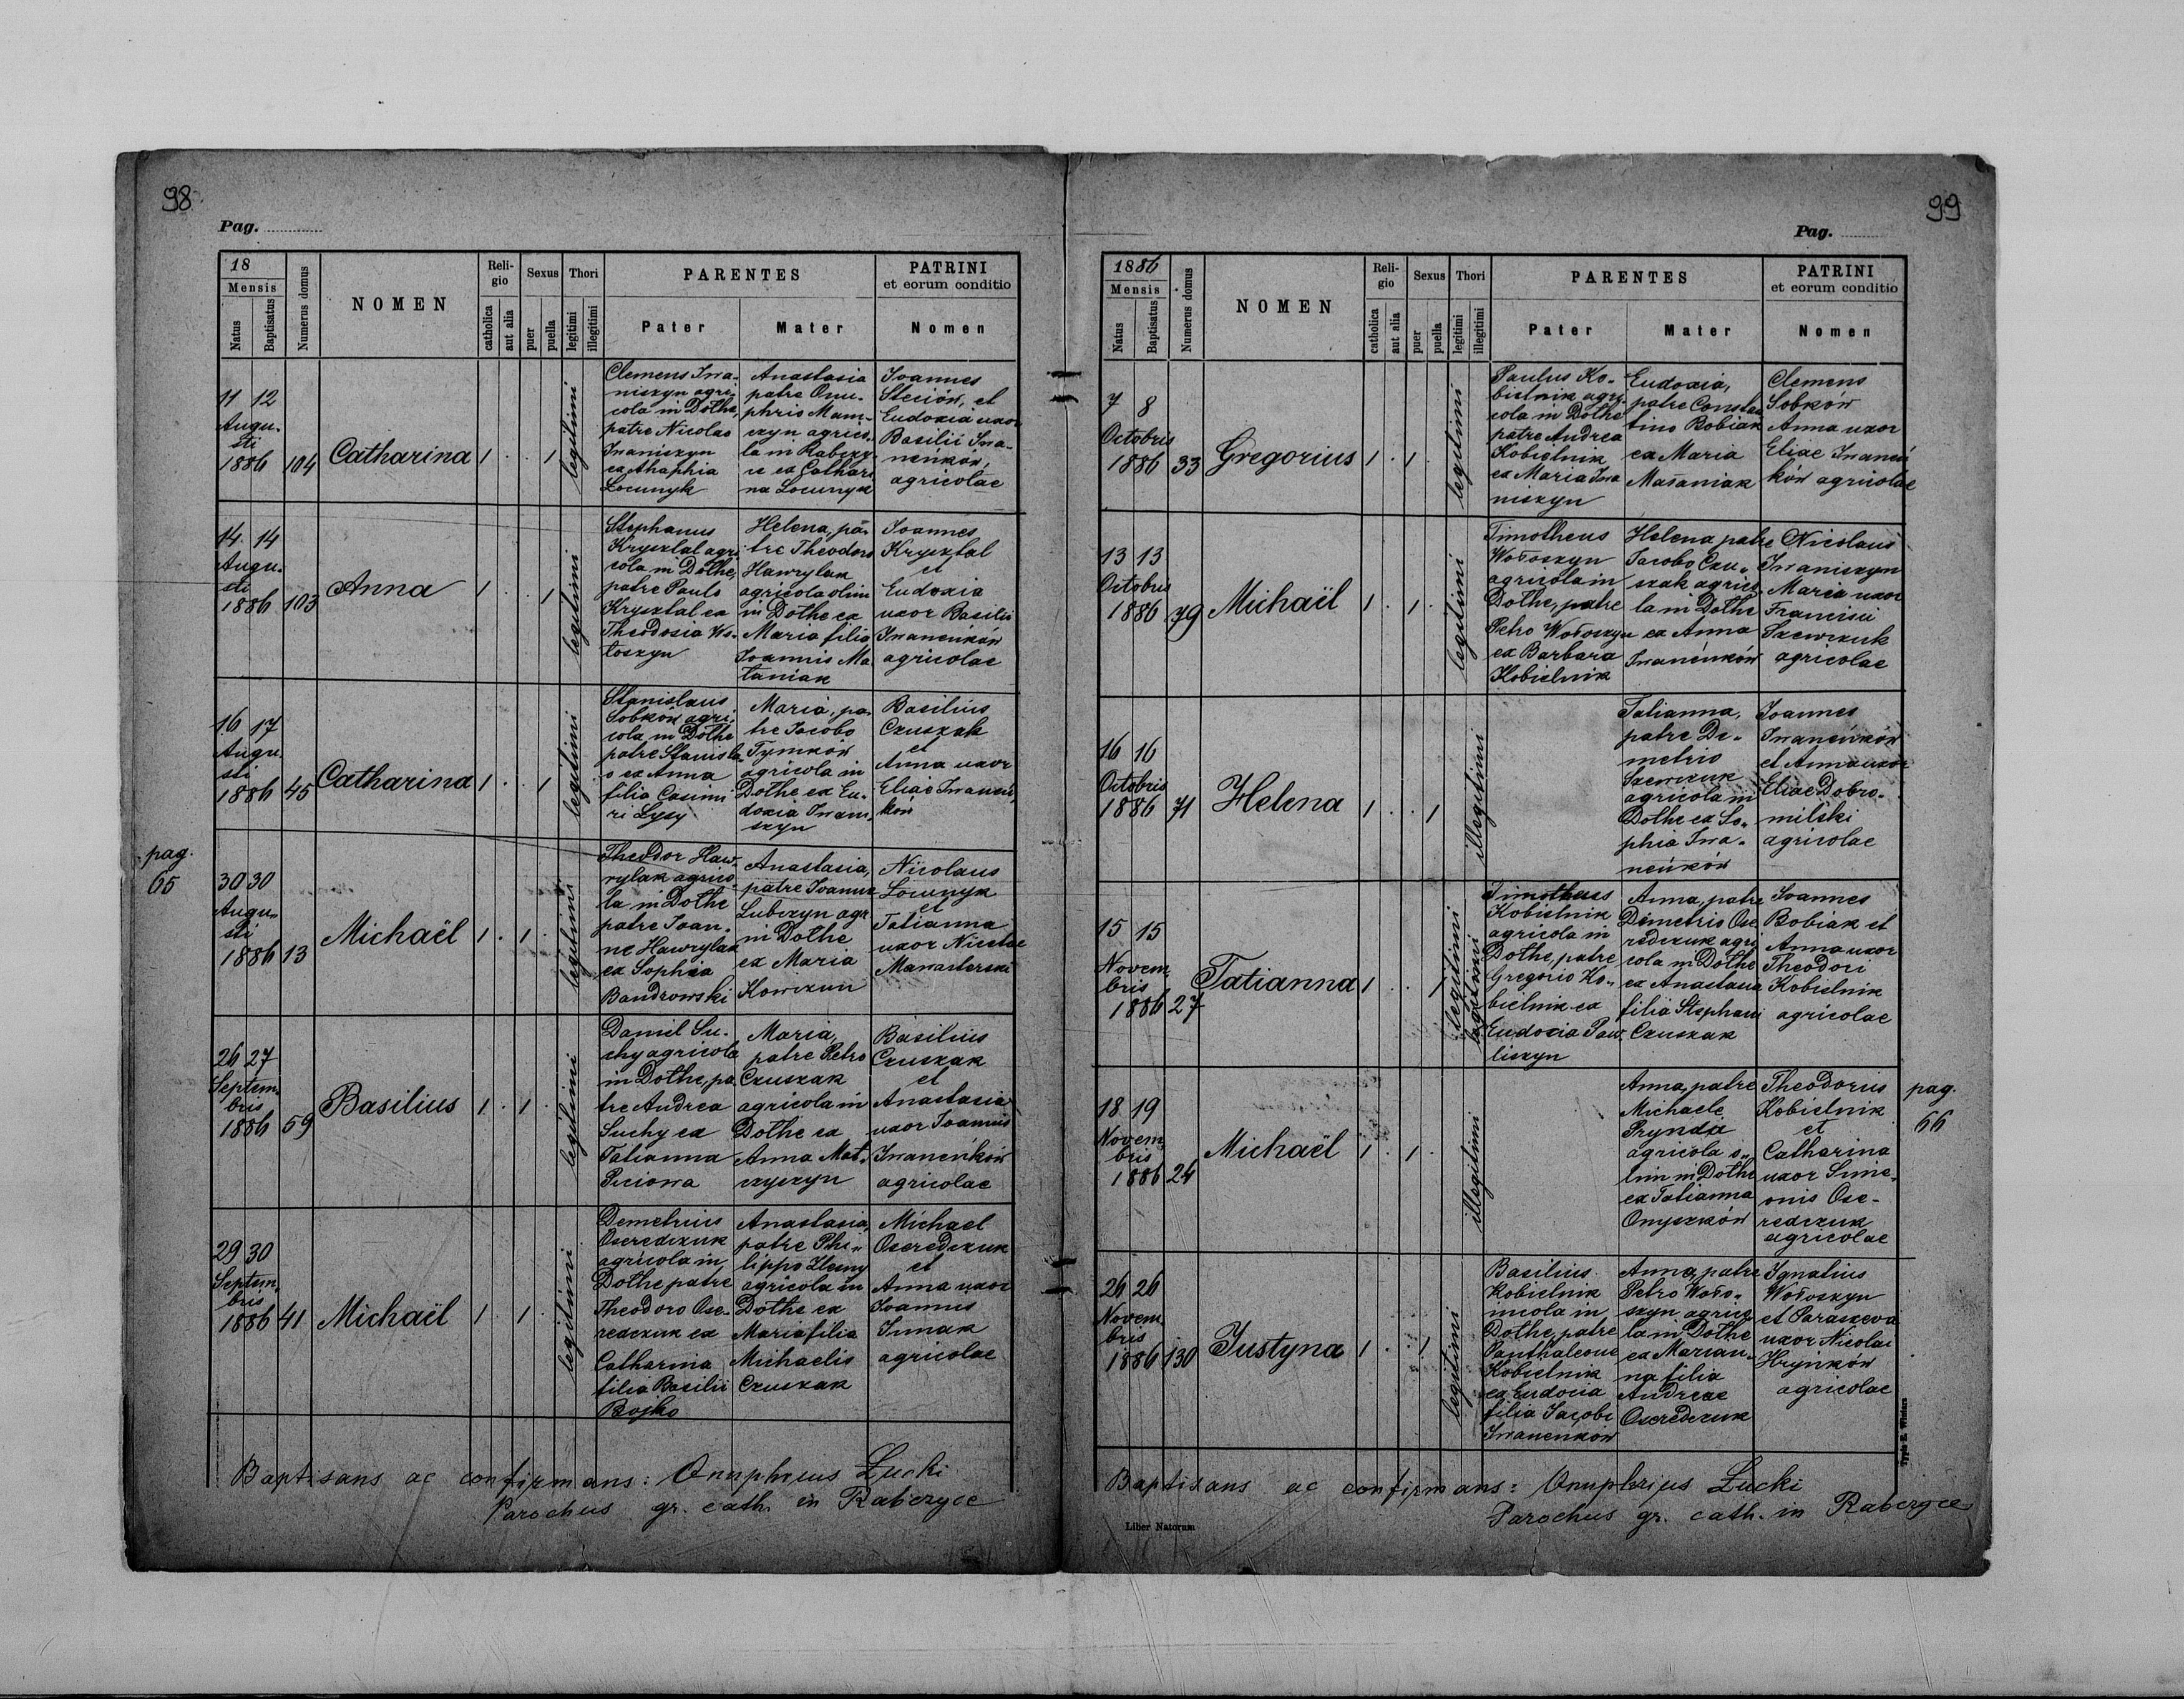 98
Pag.
18
Mensis
Natus
Baptisatus
Numerus domus
NOMEN
Religio
catholica
aut alia
Sexus
puer
puella
Thori
legitimi
illegitimi
PARENTES
Pater
Mater
PATRINI
et eorum conditio
Nomen
11 12
Augu-
sti
1886
104
Catharina
1 . . 1
legitimi
Clemens Iwa-
niszyn agri-
cola in Dołhe,
patre Nicolao
Iwaniszyn
ex Ahaphia
Łocunyk
Anastasia
patre Onu-
phrio Mam-
czyn agrico-
la in Rabczy-
ce ex Cathari
na Łocunyk
Ioannes
Steciów, et
Eudoxia uxor
Basilii Iwa-
neńków,
agricolae
14 14
Augu-
sti
1886
103
Anna
1 . . 1
legitimi
Stephanus
Krysztal agri-
cola in Dołhe,
patre Paulo
Krysztal ex
Theodosia Wo-
łoszyn
Helena, pa-
tre Theodoro
Hawrylak
agricola olim
in Dołhe ex
Maria filia
Ioannis Ma-
łaniak
Ioannes
Krysztal
et
Eudoxia
uxor Basilii
Iwaneńków
agricolae
16 17
Augu-
sti
1886
45
Catharina
1 . . 1
legitimi
Stanislaus
Sobków agri-
cola in Dołhe
patre Stanisla-
o ex Anna
filia Casimi-
ri Łysy
Maria, pa-
tre Iacobo
Tymków
agricola in
Dołhe ex Eu-
doxia Iwani-
szyn
Basilius
Czuszak
et
Anna uxor
Eliae Iwaneń-
ków
pag.
65
30 30
Augu-
sti
1886
13
Michaël
1 . 1 .
legitimi
Theodor Haw-
rylak agrico-
la in Dołhe
patre Ioan-
ne Hawrylak
ex Sophia
Bandrowski
Anastasia,
patre Ioanne
Lubczyn agr.
in Dołhe
ex Maria
Kowczun
Nicolaus
Łocunyk
et
Tatianna
uxor Nicolae
Manasterski
26 27
Septem-
bris
1886
59
Basilius
1 . 1 .
legitimi
Daniel Su-
chy agricola
in Dołhe, pa-
tre Andrea
Suchy ex
Tatianna
Peciowa
Maria,
patre Petro
Czuszak
agricola in
Dołhe ex
Anna Mat-
czyszyn
Basilius
Czuszak
et
Anastasia
uxor Ioannis
Iwaneńków
agricolae
29 30
Septem-
bris
1886
41
Michaël
1 . 1 .
legitimi
Demetrius
Oseredczuk
agricola in
Dołhe patre
Theodoro Ose-
redczuk ex
Catharina
filia Basilii
Bojko
Anastasia,
patre Phi-
lippo
agricola in
Dołhe ex
Maria filia
Michaelis
Czuszak
Michael
Oseredczuk
et
Anna uxor
Ioannis
agricolae
Baptisans ac confirmans: Onuphrius Łucki
Parochus gr. cath. in Rabczyce
99
Pag.
1886
Mensis
Natus
Baptisatus
Numerus domus
NOMEN
Religio
catholica
aut alia
Sexus
puer
puella
Thori
legitimi
illegitimi
PARENTES
Pater
Mater
PATRINI
et eorum conditio
Nomen
7 8
Octobris
1886
33
Gregorius
1 . 1 .
legitimi
Paulus Ko-
bielnik agri-
cola in Dołhe
patre Andrea
Kobielnik
ex Maria Iwa
niszyn
Eudoxia,
patre Constan
tino Bobiak
ex Maria
Małaniak
Clemens
Sobków
Anna uxor
Eliae Iwaneń
ków agricolae
13 13
Octobris
1886
79
Michaël
1 . 1 .
legitimi
Timotheus
Wołoszyn
agricola in
Dołhe, patre
Petro Wołoszyn
ex Barbara
Kobielnik
Helena patre
Iacobo Czu-
szak agrico-
la in Dołhe
ex Anna
Iwaneńków
Nicolaus
Iwaniszyn
Maria uxor
Francisci
Szewczuk
agricolae
16 16
Octobris
1886
71
Helena
1 . . 1
illegitimi
Tatianna,
patre De-
metrio
Szewczuk
agricola in
Dołhe ex So-
phia Iwa-
neńków
Ioannes
Iwaneńków
et Anna uxor
Eliae Dobro-
milski
agricolae
15 15
Novem
bris
1886
27
Tatianna
1 . . 1
legitimi
legitimi
Timotheus
Kobielnik
agricola in
Dołhe, patre
Gregorio Ko-
bielnik ex
Eudoxia Paw-
liszyn
Anna, patre
Demetrio Ose
redczuk agri
cola in Dołhe
ex Anastasia
filia Stephani
Czuszak
Ioannes
Bobiak et
Anna uxor
Theodori
Kobielnik
agricolae
18 19
Novem
bris
1886
24
Michaël
1 . 1 .
illegitimi
Anna, patre
Michaele
Prynda
agricola o-
lim in Dołhe
ex Tatianna
Onyszków
Theodorus
Kobielnik
et
Catharina
uxor Sime-
onis Ose-
redczuk
agricolae
pag.
66
26 26
Novem
bris
1886
130
Justyna
1 . . 1
legitimi
Basilius
Kobielnik
incola in
Dołhe, patre
Panthaleone
Kobielnik
ex Eudocia
filia Iacobi
Iwanenkow
Anna, patre
Petro Woło-
szyn agrico-
la in Dołhe
ex Marian-
na filia
Andreae
Oseredczuk
Ignatius
Wołoszyn
et Paraskeva
uxor Nicolai
Hryńków
agricolae
Baptisans ac confirmans: Onuphrius Łucki
Parochus gr. cath. in Rabczyce
Liber Natorum